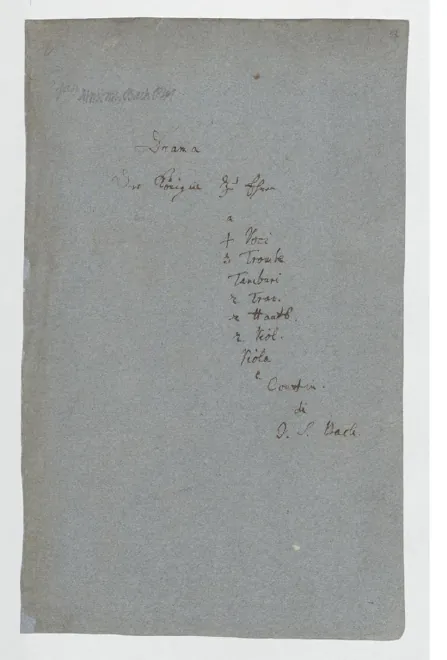 Drama
Der Königin Zu Ehren
a
4 Voci
3 Trombe
Tamburi
2 Trav.
2 Hautb.
2 Viol.
Viola
e
Contin.
di
J. S. Bach